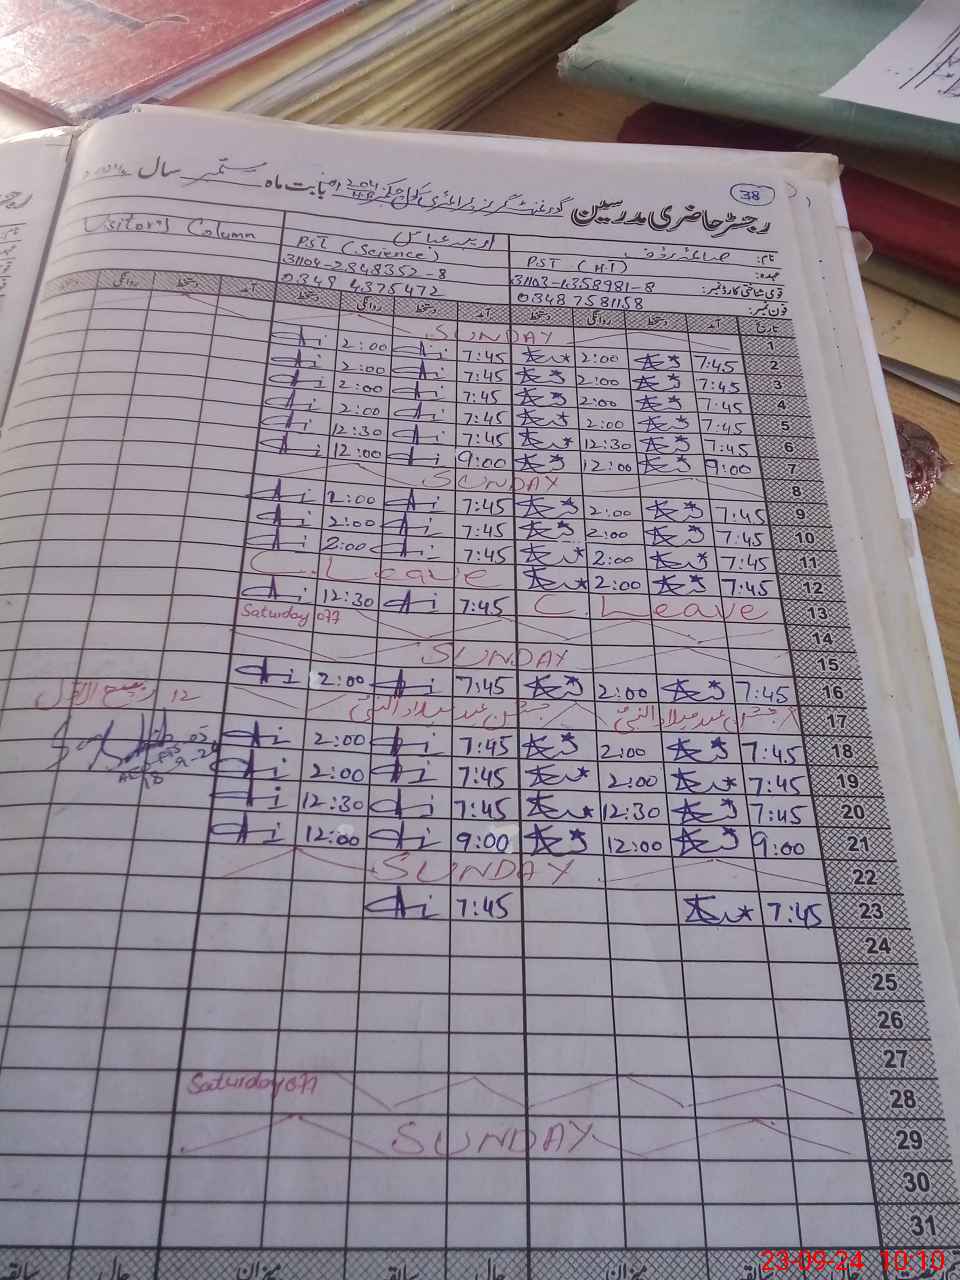 38
رجسٹر حاضری مدرسین گورنمنٹ گرلز پرائمری سکول چک بابت ماہ ستمبر سال
نام: صائمہ رؤف
Visitor's Column
عہدہ: PST (HT) PST (Science)
قومی شناختی کارڈ نمبر: 31103-1358981-8 31104-2848352-8
فون نمبر: 03487581158 0348 4375472
تاریخ آمد دستخط روانگی دستخط آمد دستخط روانگی دستخط آمد دستخط روانگی دستخط
1 SUNDAY
2 7:45 2:00 7:45 2:00
3 7:45 2:00 7:45 2:00
4 7:45 2:00 7:45 2:00
5 7:45 2:00 7:45 2:00
6 7:45 12:30 7:45 12:30
7 9:00 12:00 9:00 12:00
8 SUNDAY
9 7:45 2:00 7:45 2:00
10 7:45 2:00 7:45 2:00
11 7:45 2:00 7:45 2:00
12 7:45 2:00 C. Leave
13 C. Leave 7:45 12:30
14 Saturday off
15 SUNDAY
16 7:45 2:00 7:45 2:00
17 جشن عید میلاد النبیؐ جشن عید میلاد النبیؐ 12 ربیع الاول
18 7:45 2:00 7:45 2:00
19 7:45 2:00 7:45 2:00
20 7:45 12:30 7:45 12:30
21 9:00 12:00 9:00 12:00
22 SUNDAY
23 7:45 7:45
24
25
26
27
28 Saturday off
29 SUNDAY
30
31
سابقہ حال میزان سابقہ حال میزان
23-09-24 10:10